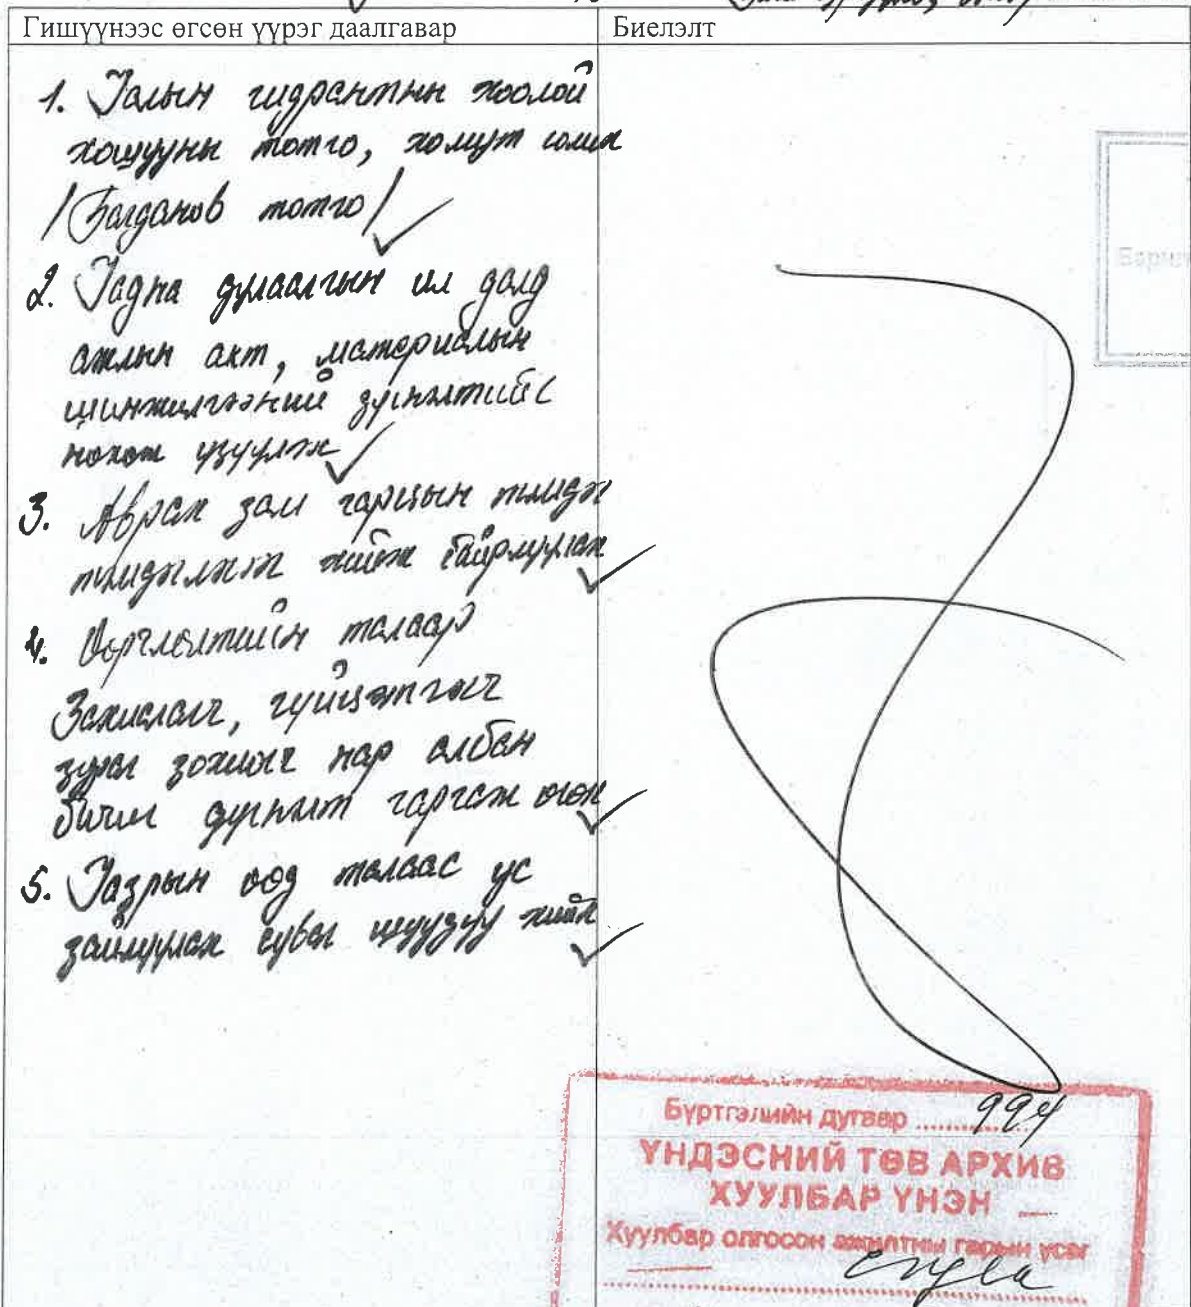 Гишүүнээс өгсөн үүрэг даалгавар
Биелэлт
1. Галын гидрантны хоолой
хошууны толго, хомут солих
/Багданов толго/
2. Гадна дулаалгын ил далд
ажлын акт, материалын
шинжилгээний дүгнэлтийг
нөхөж үзүүлэх
3. Аврах зам гарцын тэмдэг
тэмдэглэгээ хийж байрлуулах
4. Өөрчлөлтийн талаар
Захиалагч, гүйцэтгэгч
зураг зохиогч нар албан
бичиг дүгнэлт гаргаж өгөх
5. Газрын өөд талаас ус
зайлуулах суваг шуудуу хийх
Бүртгэлийн дугаар 994
ҮНДЭСНИЙ ТӨВ АРХИВ
ХУУЛБАР ҮНЭН
Хуулбар олгосон ажилтны гарын үсэг